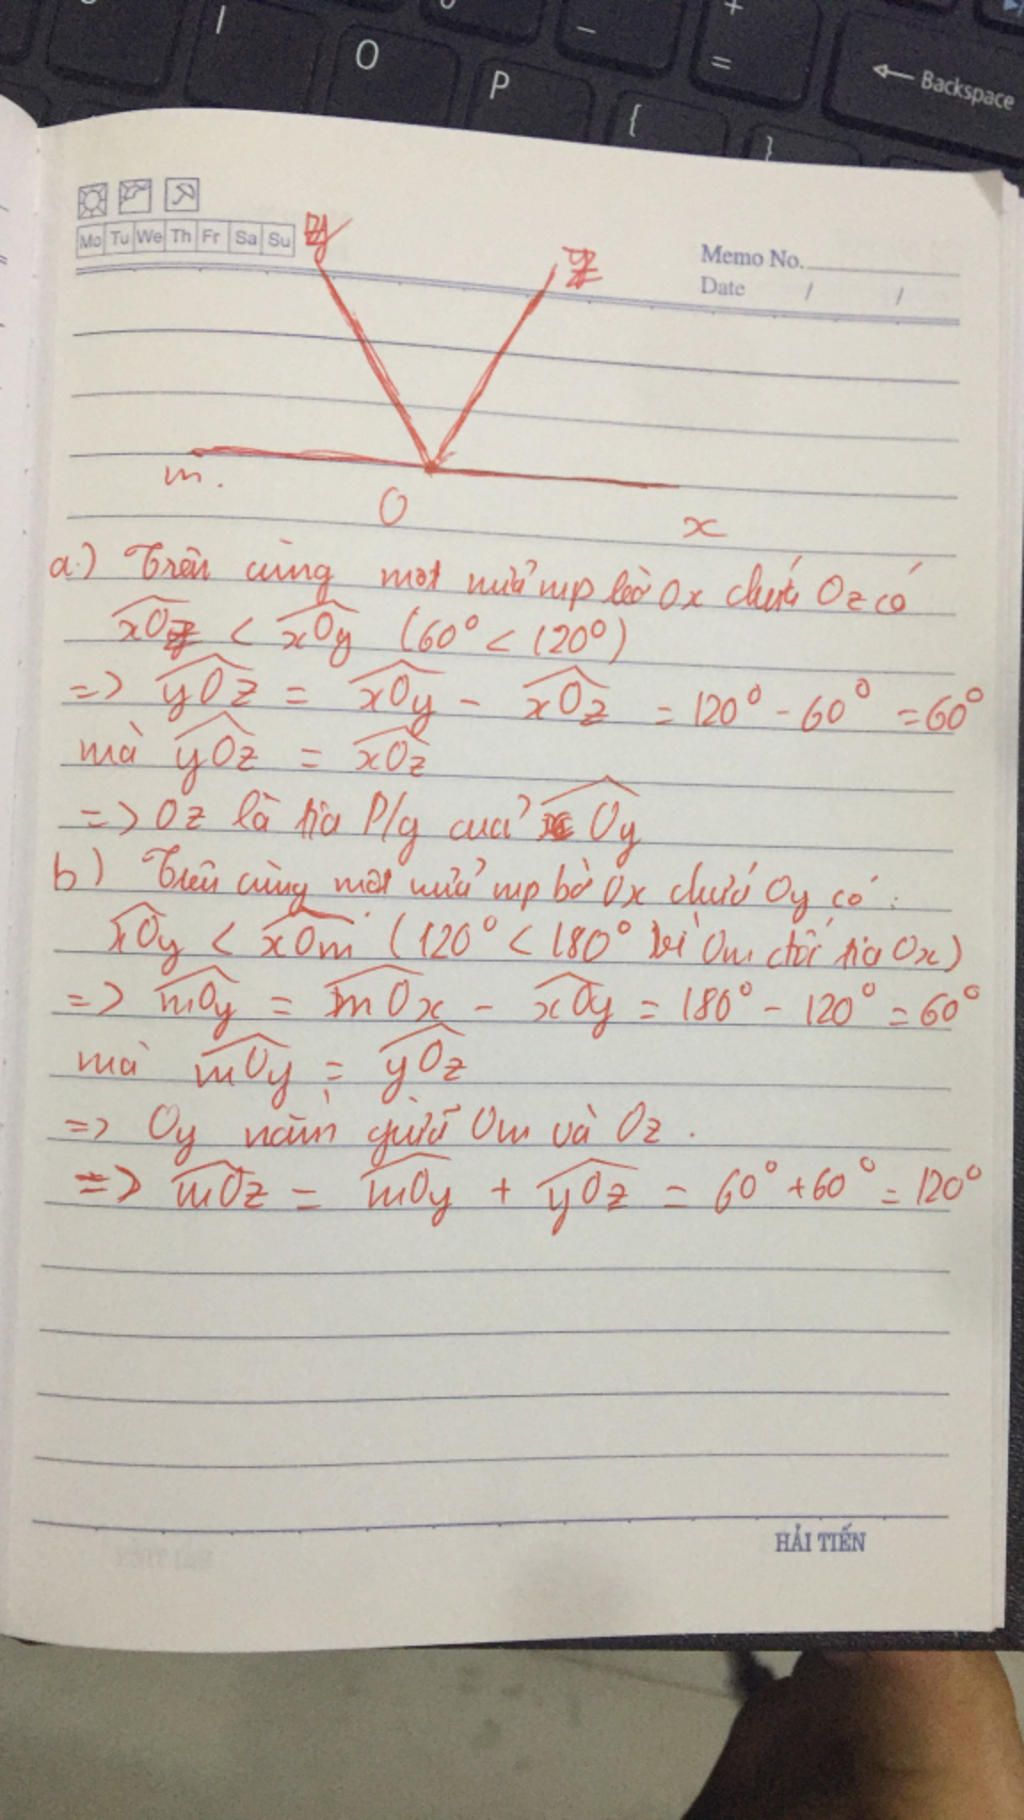 O
P
{
}
_
-
+
=
Backspace
Mo Tu We Th Fr Sa Su
Memo No.
Date / /
y
z
m.
O
x
a.) Trên cùng một nửa mp bờ Ox chứa Oz có
xOz < xOy (60° < 120°)
=> yOz = xOy - xOz = 120° - 60° = 60°
mà yOz = xOz
=> Oz là tia P/g của xOy
b) Trên cùng một nửa mp bờ Ox chứa Oy có:
xOy < xOm (120° < 180° vì Om đối tia Ox)
=> mOy = mOx - xOy = 180° - 120° = 60°
mà mOy = yOz
=> Oy nằm giữa Om và Oz.
=> mOz = mOy + yOz = 60° + 60° = 120°
HẢI TIẾN